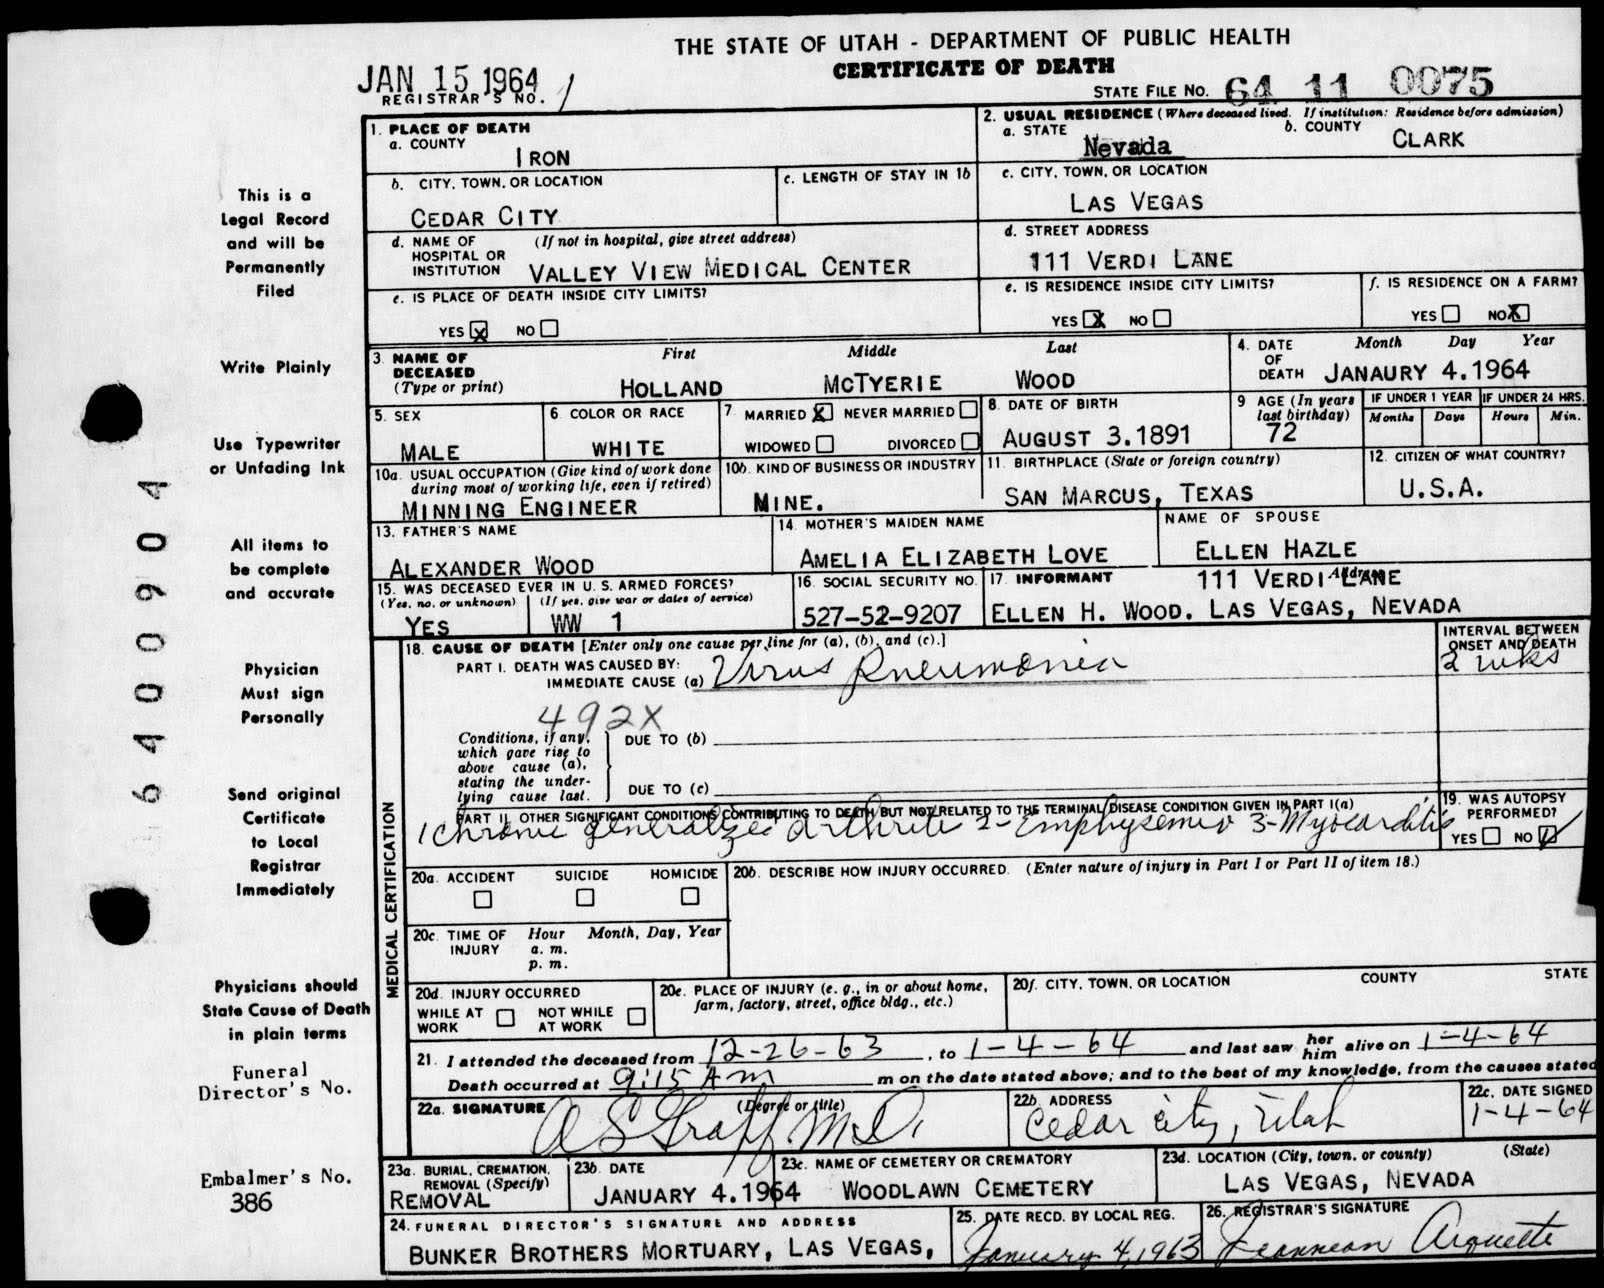 THE STATE OF UTAH - DEPARTMENT OF PUBLIC HEALTH
CERTIFICATE OF DEATH
JAN 15 1964
REGISTRAR'S NO. 1
STATE FILE NO. 64 11 0075
1. PLACE OF DEATH
a. COUNTY
IRON
2. USUAL RESIDENCE (Where deceased lived. If institution: Residence before admission)
a. STATE
Nevada
b. COUNTY
CLARK
b. CITY, TOWN, OR LOCATION
CEDAR CITY
c. LENGTH OF STAY IN 1b
c. CITY, TOWN, OR LOCATION
LAS VEGAS
d. NAME OF HOSPITAL OR INSTITUTION (If not in hospital, give street address)
VALLEY VIEW MEDICAL CENTER
d. STREET ADDRESS
111 VERDI LANE
e. IS PLACE OF DEATH INSIDE CITY LIMITS?
YES X NO
e. IS RESIDENCE INSIDE CITY LIMITS?
YES X NO
f. IS RESIDENCE ON A FARM?
YES NO X
3. NAME OF DECEASED (Type or print)
First Middle Last
HOLLAND MCTYERIE WOOD
4. DATE OF DEATH
Month Day Year
JANAURY 4.1964
5. SEX
MALE
6. COLOR OR RACE
WHITE
7. MARRIED X NEVER MARRIED
WIDOWED DIVORCED
8. DATE OF BIRTH
AUGUST 3.1891
9 AGE (In years last birthday)
72
IF UNDER 1 YEAR
Months Days
IF UNDER 24 HRS.
Hours Min.
10a. USUAL OCCUPATION (Give kind of work done during most of working life, even if retired)
MINNING ENGINEER
10b. KIND OF BUSINESS OR INDUSTRY
MINE.
11. BIRTHPLACE (State or foreign country)
SAN MARCUS, TEXAS
12. CITIZEN OF WHAT COUNTRY?
U.S.A.
13. FATHER'S NAME
ALEXANDER WOOD
14. MOTHER'S MAIDEN NAME
AMELIA ELIZABETH LOVE
NAME OF SPOUSE
ELLEN HAZLE
15. WAS DECEASED EVER IN U. S. ARMED FORCES?
(Yes, no, or unknown) (If yes, give war or dates of service)
YES WW 1
16. SOCIAL SECURITY NO.
527-52-9207
17. INFORMANT Address
111 VERDI LANE
ELLEN H. WOOD. LAS VEGAS, NEVADA
18. CAUSE OF DEATH [Enter only one cause per line for (a), (b), and (c).]
PART I. DEATH WAS CAUSED BY:
IMMEDIATE CAUSE (a) Virus Pneumonia
INTERVAL BETWEEN ONSET AND DEATH
2 wks
492X
Conditions, if any, which gave rise to above cause (a), stating the underlying cause last.
DUE TO (b)
DUE TO (c)
PART II. OTHER SIGNIFICANT CONDITIONS CONTRIBUTING TO DEATH BUT NOT RELATED TO THE TERMINAL DISEASE CONDITION GIVEN IN PART I(a)
1 Chronic generalized arthritis 2- Emphysema 3- Myocarditis
19. WAS AUTOPSY PERFORMED?
YES NO
MEDICAL CERTIFICATION
20a. ACCIDENT SUICIDE HOMICIDE
20b. DESCRIBE HOW INJURY OCCURRED. (Enter nature of injury in Part I or Part II of item 18.)
20c. TIME OF INJURY
Hour Month, Day, Year
a. m.
p. m.
20d. INJURY OCCURRED
WHILE AT WORK NOT WHILE AT WORK
20e. PLACE OF INJURY (e. g., in or about home, farm, factory, street, office bldg., etc.)
20f. CITY, TOWN, OR LOCATION COUNTY STATE
21. I attended the deceased from 12-26-63, to 1-4-64 and last saw her him alive on 1-4-64
Death occurred at 9:15 A m m on the date stated above; and to the best of my knowledge, from the causes stated
22a. SIGNATURE (Degree or title)
A S Graff M.D.
22b. ADDRESS
Cedar City, Utah
22c. DATE SIGNED
1-4-64
23a. BURIAL, CREMATION, REMOVAL (Specify)
REMOVAL
23b. DATE
JANUARY 4.1964
23c. NAME OF CEMETERY OR CREMATORY
WOODLAWN CEMETERY
23d. LOCATION (City, town, or county) (State)
LAS VEGAS, NEVADA
24. FUNERAL DIRECTOR'S SIGNATURE AND ADDRESS
BUNKER BROTHERS MORTUARY, LAS VEGAS,
25. DATE RECD. BY LOCAL REG.
January 4, 1963
26. REGISTRAR'S SIGNATURE
Jeannean Arquette
This is a
Legal Record
and will be
Permanently
Filed
Write Plainly
Use Typewriter
or Unfading Ink
All items to
be complete
and accurate
Physician
Must sign
Personally
Send original
Certificate
to Local
Registrar
Immediately
Physicians should
State Cause of Death
in plain terms
Funeral
Director's No.
Embalmer's No.
386
6400904